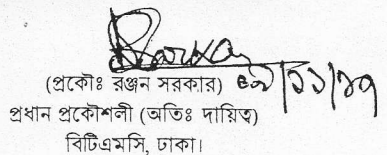 (প্রকৌঃ রঞ্জন সরকার)
প্রধান প্রকৌশলী (অতিঃ দায়িত্ব)
বিটিএমসি, ঢাকা।